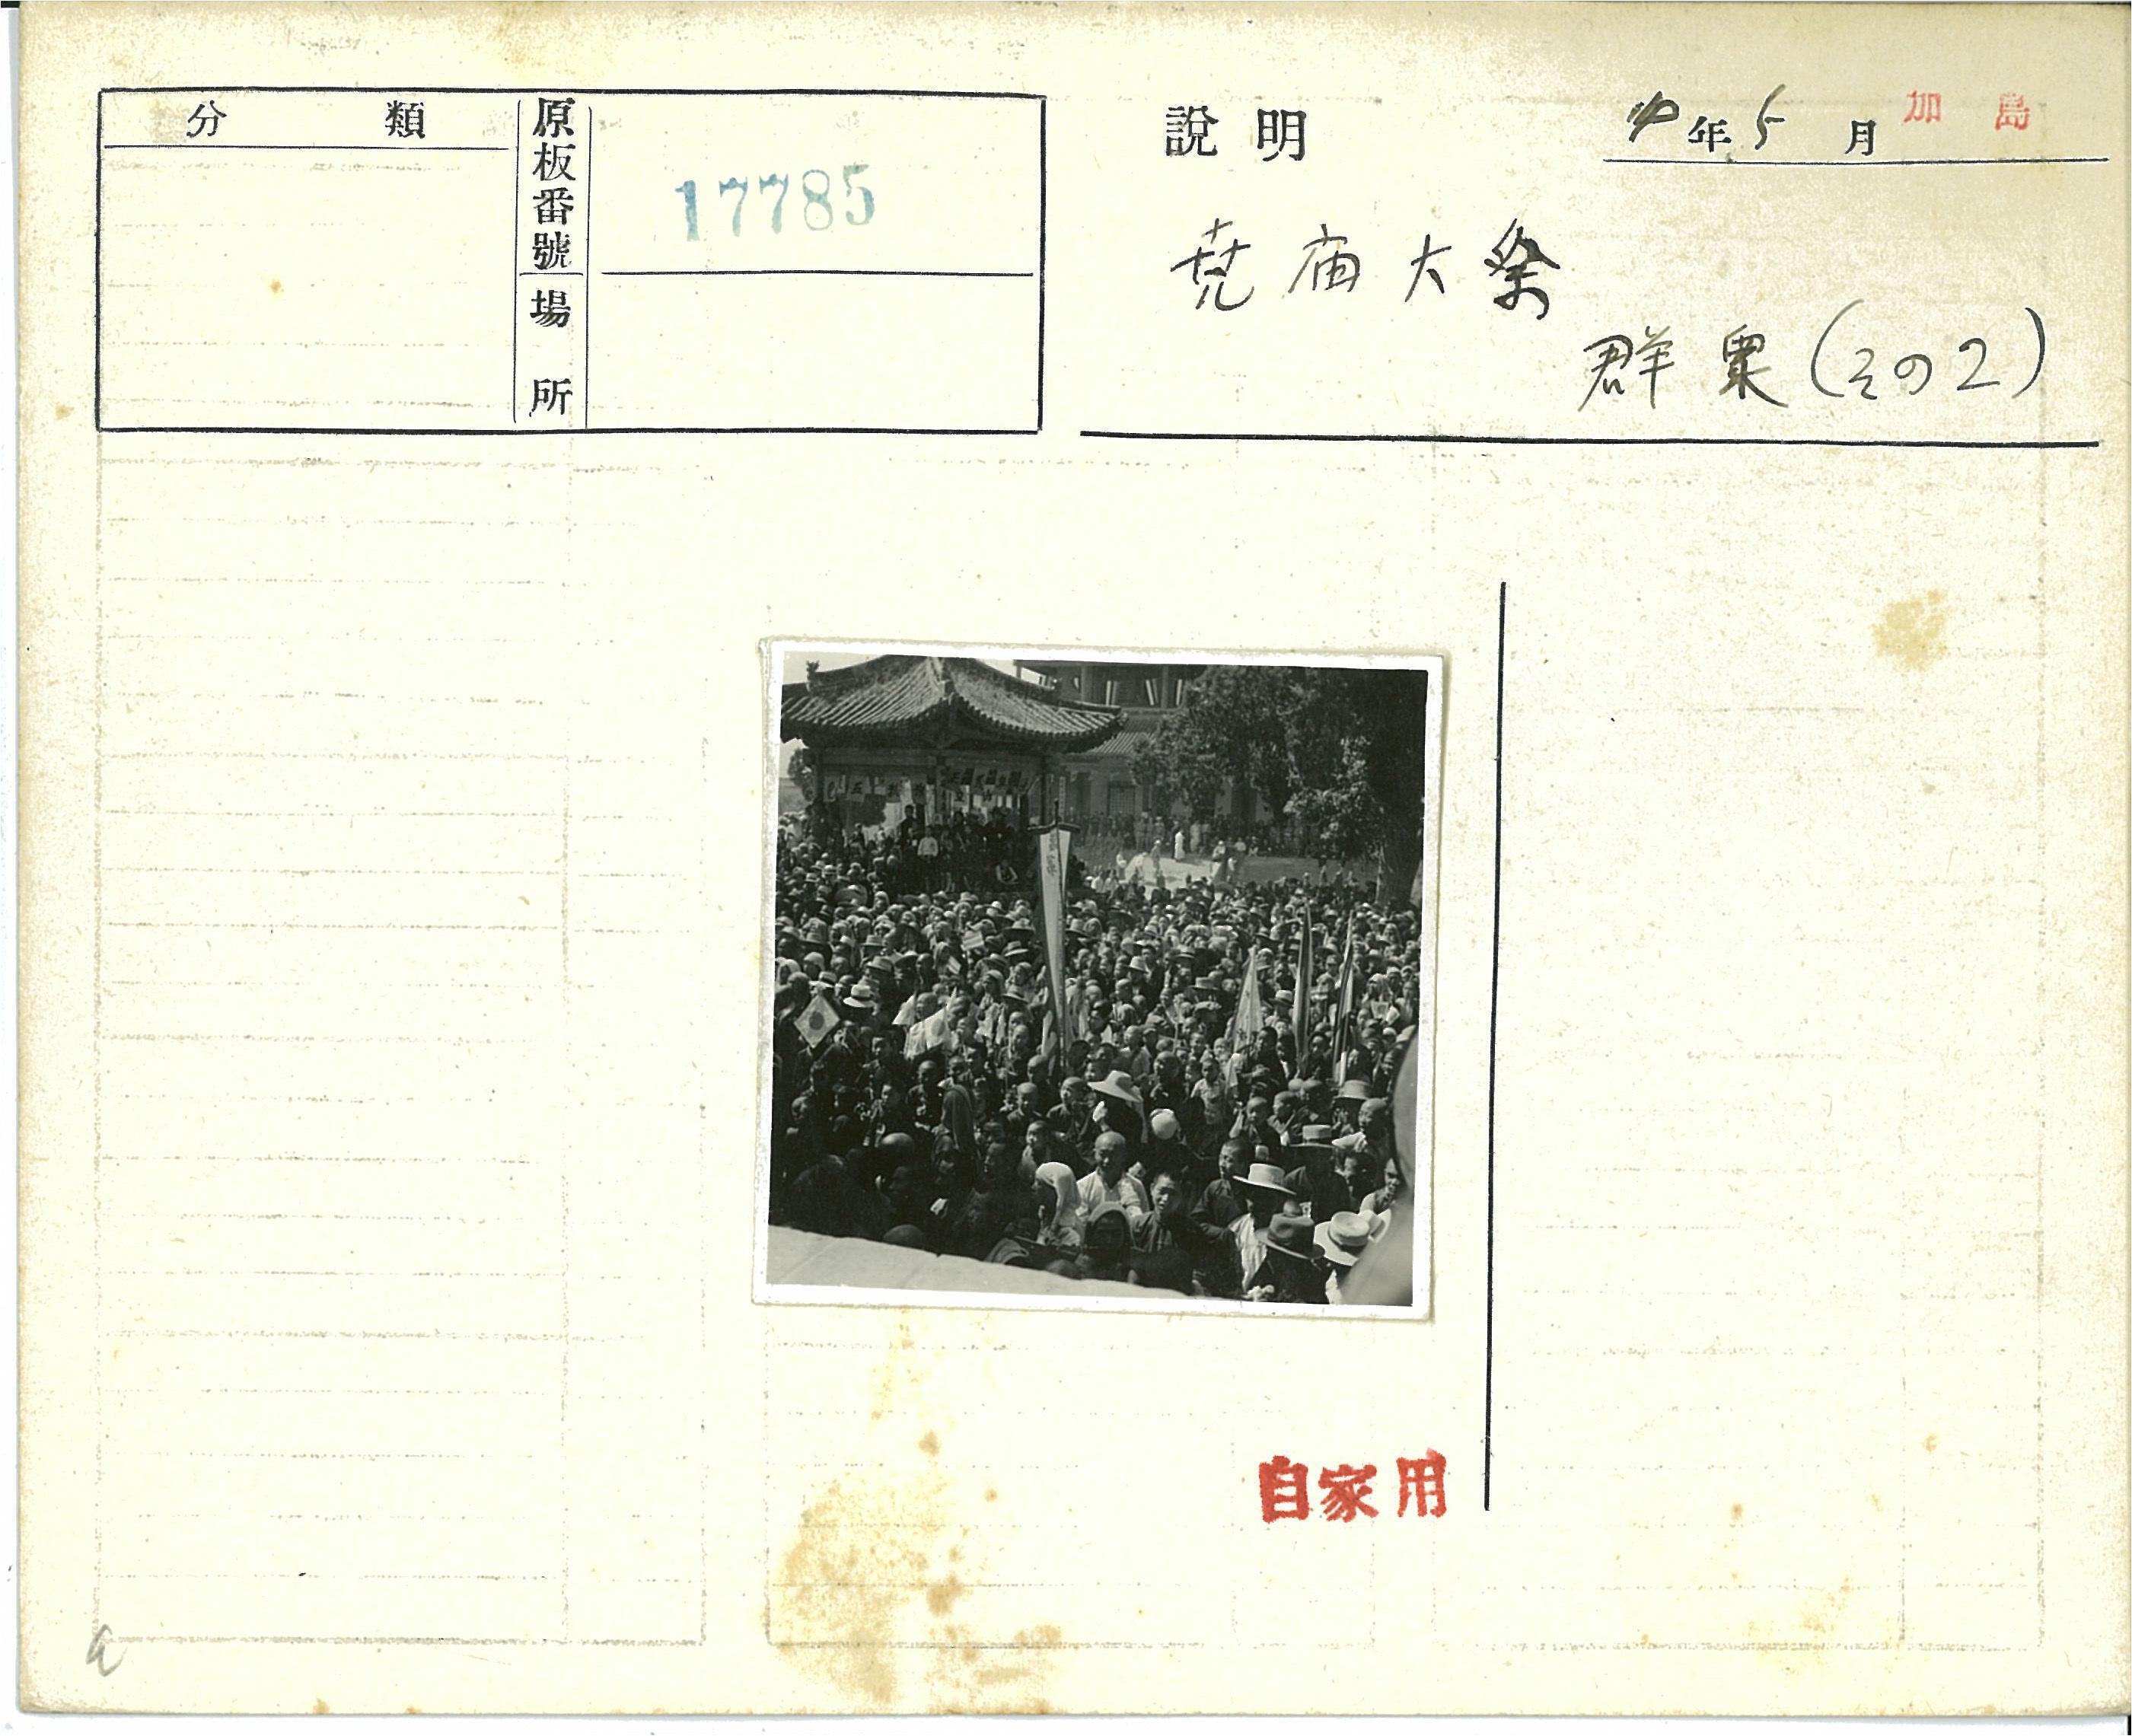 分類
原板番號
17785
場所
説明
年5月 加島
尭庙大祭
群衆(その2)
自家用